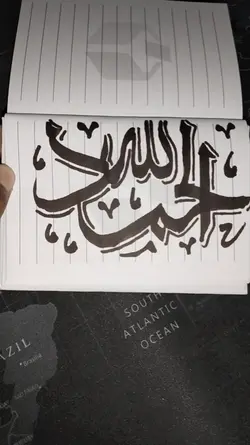 الحمد لله
SOUTH
ATLANTIC
OCEAN
AZIL